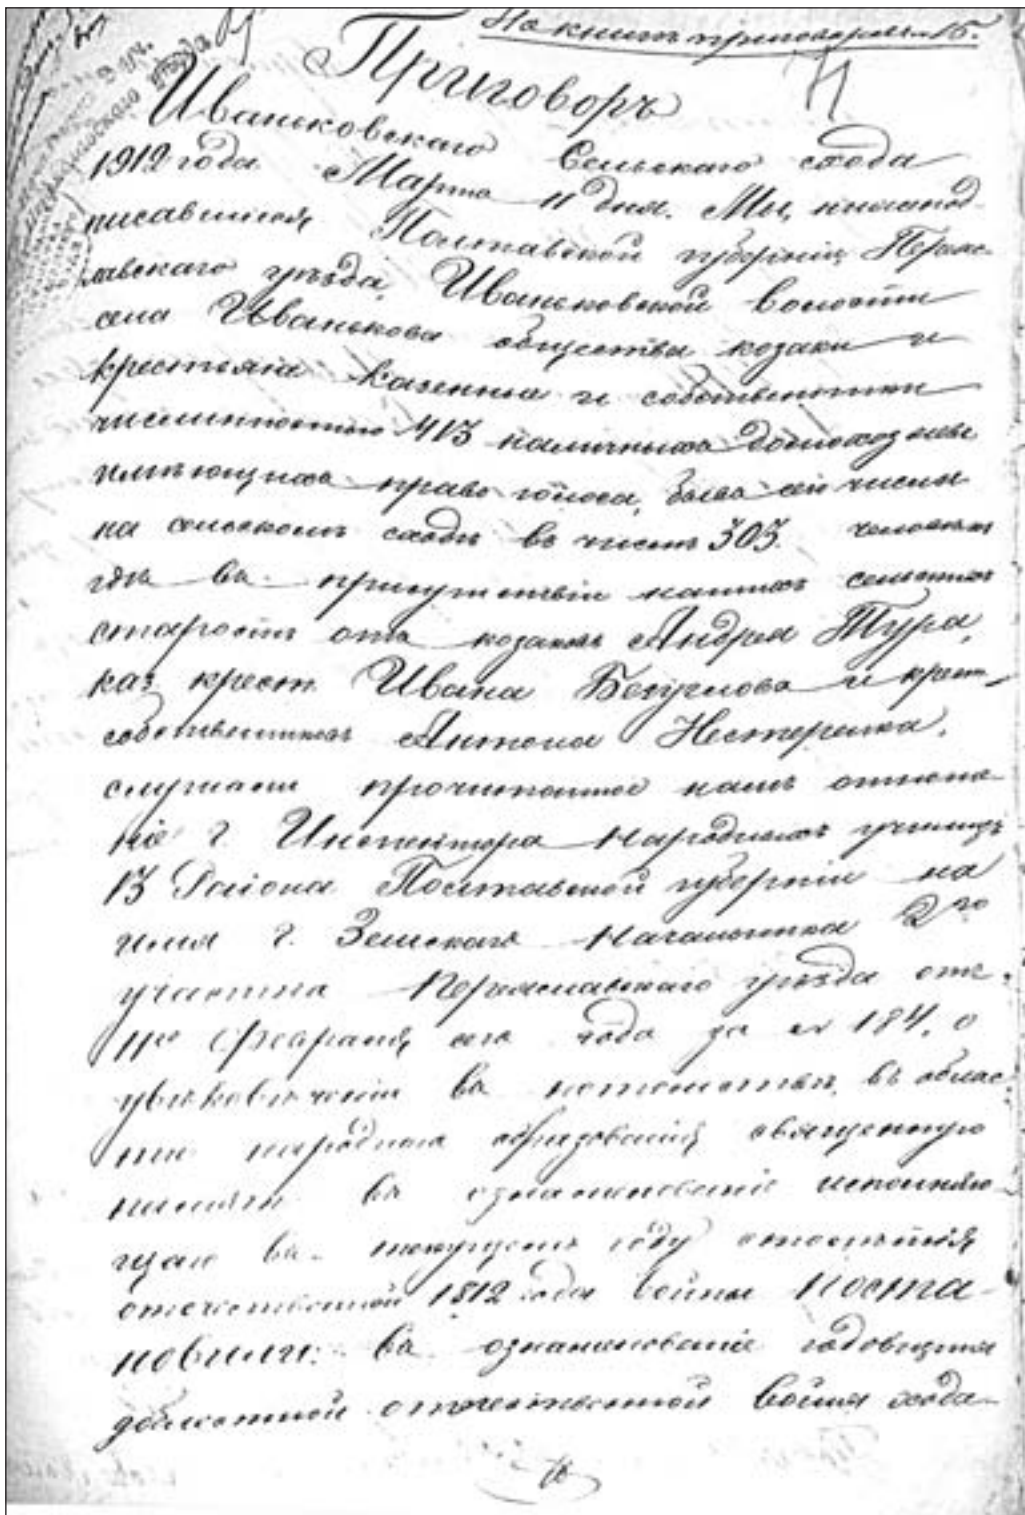 По книгѣ приговоровъ 15.
Приговоръ
Иваньковскаго Сельскаго схода
1912 года Марта 11 дня. Мы, нижепод-
писавшіеся, Полтавской губерніи, Переяс-
лавскаго уѣзда, Иваньковской волости
села Иванькова общества козаки и
крестьяне казенные и собственники
численностью 413 наличныхъ домохозяевъ
имѣющихъ право голоса, бывъ сего числа
на сельскомъ сходѣ въ числѣ 303 человѣкъ
гдѣ въ присутствіи нашихъ сельскихъ
старостъ отъ козаковъ Андрея Тура,
каз. крест. Ивана и крест.
собственниковъ Антона Нестеренка,
слушали прочитанное намъ отноше-
ніе г. Инспектора народныхъ училищъ
13 Района Полтавской губерніи на
имя г. Земскаго Начальника 2го
участка Переяславскаго уѣзда отъ
11го февраля сего года за № 184, о
увѣковѣченіи въ потомствѣ, въ облас-
ти народнаго образованія священную
память въ ознаменованіе исполняю-
щаго въ текущемъ году столѣтія
отечественной 1812 года войны Поста-
новили: въ ознаменованіе годовщины
доблестной отечественной войны хода-